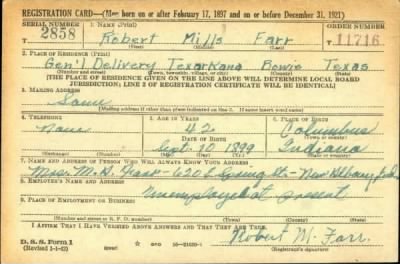 REGISTRATION CARD—(Men born on or after February 17, 1897 and on or before December 31, 1921)
SERIAL NUMBER 1. NAME (Print) ORDER NUMBER
T 2858 Robert Mills Farr T 11716
(First) (Middle) (Last)
2. PLACE OF RESIDENCE (Print)
Gen'l Delivery Texarkana Bowie Texas
(Number and street) (Town, township, village, or city) (County) (State)
[THE PLACE OF RESIDENCE GIVEN ON THE LINE ABOVE WILL DETERMINE LOCAL BOARD
JURISDICTION; LINE 2 OF REGISTRATION CERTIFICATE WILL BE IDENTICAL]
3. MAILING ADDRESS
Same
[Mailing address if other than place indicated on line 2. If same insert word same]
4. TELEPHONE 5. AGE IN YEARS 6. PLACE OF BIRTH
None 42 Columbus
DATE OF BIRTH (Town or county)
Sept. 10 1899 Indiana
(Exchange) (Number) (Mo.) (Day) (Yr.) (State or country)
7. NAME AND ADDRESS OF PERSON WHO WILL ALWAYS KNOW YOUR ADDRESS
Mrs. M. D. Farr - 620 E Spring St - New Albany Ind
8. EMPLOYER'S NAME AND ADDRESS
Unemployed at present
9. PLACE OF EMPLOYMENT OR BUSINESS
(Number and street or R. F. D. number) (Town) (County) (State)
I AFFIRM THAT I HAVE VERIFIED ABOVE ANSWERS AND THAT THEY ARE TRUE.
D. S. S. Form 1
(Revised 1-1-42) (over) 16-21630-1 Robert M. Farr.
(Registrant's signature)